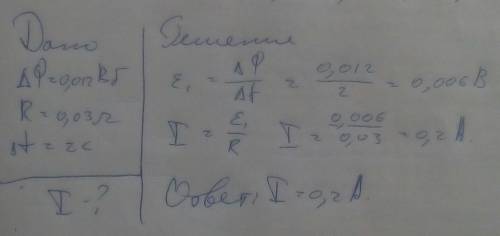 Дано
ΔФ=0,012Вб
R=0,03Ω
Δt=2с
I-?
Решение
ε₁ = ΔФ/Δt = 0,012/2 = 0,006В
I = ε₁/R I = 0,006/0,03 = 0,2А.
Ответ: I=0,2А.